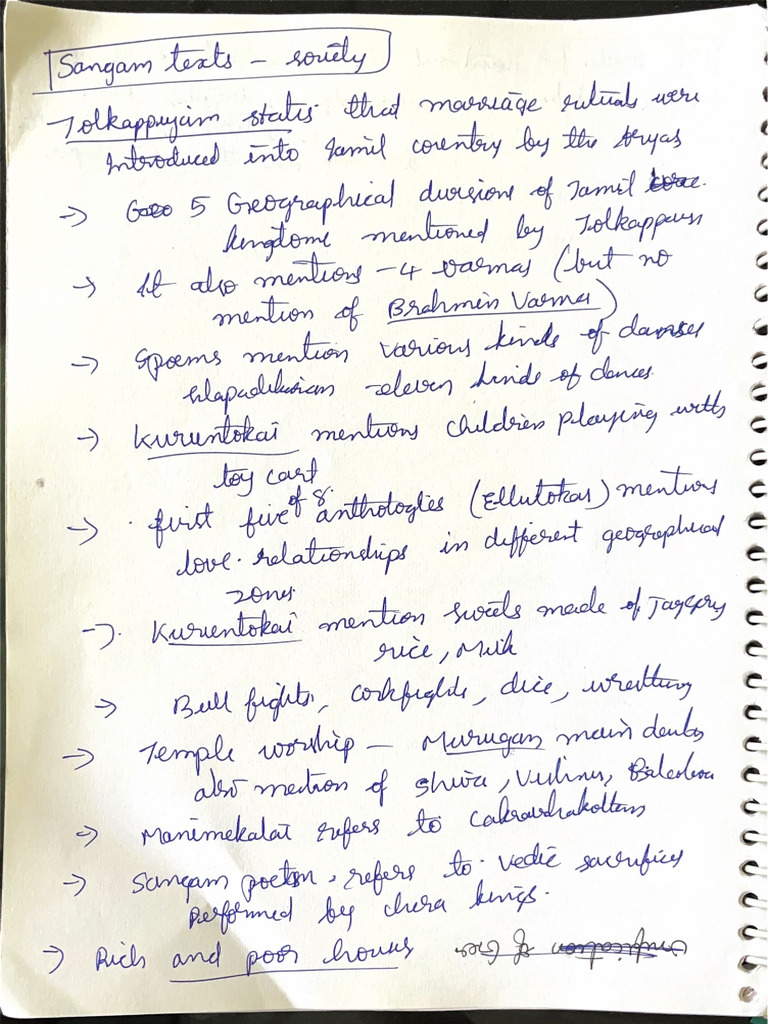 Sangam texts - society
Tolkappuyam states that marriage rituals were
Introduced into Tamil country by the Aryas
→ 5 Geographical divisions of Tamil
kingdome mentioned by Tolkappuyam
→ It also mentions - 4 varnas (but no
mention of Brahmin Varna)
→ poems mention various kinds of dances
silapadikaram - eleven kinds of dances.
→ Kuruntokai mentions children playing with
toy cart
→ first five of 8 anthologies (Ettutokai) mentions
love relationships in different geographical
zones
→ Kuruntokai mention sweets made of Jaggery
rice, Milk
→ Bull fights, cockfights, dice, wrestling
→ Temple worship - Murugan main deity
also mention of Shiva, Vishnu, Baladeva
→ Manimekalai refers to
→ Sangam poetry refers to Vedic sacrifices
Performed by chera kings.
→ Rich and poor houses